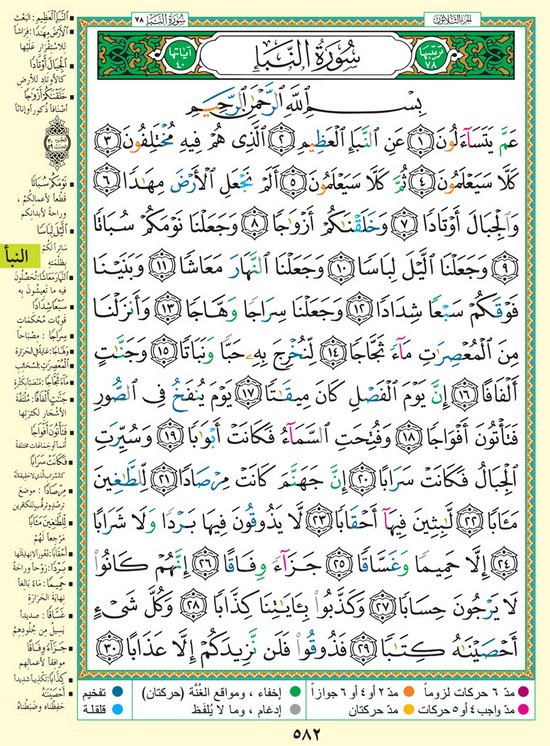 الجزء الثلاثون
سُورَةُ النَّبَإِ ٧٨
ترتيبها ٧٨
سُورَةُ النَّبَإِ
آياتها ٤٠
بِسْمِ اللَّهِ الرَّحْمَٰنِ الرَّحِيمِ
عَمَّ يَتَسَآءَلُونَ ١ عَنِ ٱلنَّبَإِ ٱلْعَظِيمِ ٢ ٱلَّذِى هُمْ فِيهِ مُخْتَلِفُونَ ٣
كَلَّا سَيَعْلَمُونَ ٤ ثُمَّ كَلَّا سَيَعْلَمُونَ ٥ أَلَمْ نَجْعَلِ ٱلْأَرْضَ مِهَٰدًا ٦
وَٱلْجِبَالَ أَوْتَادًا ٧ وَخَلَقْنَٰكُمْ أَزْوَٰجًا ٨ وَجَعَلْنَا نَوْمَكُمْ سُبَاتًا
٩ وَجَعَلْنَا ٱلَّيْلَ لِبَاسًا ١٠ وَجَعَلْنَا ٱلنَّهَارَ مَعَاشًا ١١ وَبَنَيْنَا
فَوْقَكُمْ سَبْعًا شِدَادًا ١٢ وَجَعَلْنَا سِرَاجًا وَهَّاجًا ١٣ وَأَنزَلْنَا
مِنَ ٱلْمُعْصِرَٰتِ مَآءً ثَجَّاجًا ١٤ لِّنُخْرِجَ بِهِۦ حَبًّا وَنَبَاتًا ١٥ وَجَنَّٰتٍ
أَلْفَافًا ١٦ إِنَّ يَوْمَ ٱلْفَصْلِ كَانَ مِيقَٰتًا ١٧ يَوْمَ يُنفَخُ فِى ٱلصُّورِ
فَتَأْتُونَ أَفْوَاجًا ١٨ وَفُتِحَتِ ٱلسَّمَآءُ فَكَانَتْ أَبْوَٰبًا ١٩ وَسُيِّرَتِ
ٱلْجِبَالُ فَكَانَتْ سَرَابًا ٢٠ إِنَّ جَهَنَّمَ كَانَتْ مِرْصَادًا ٢١ لِّلطَّٰغِينَ
مَـَٔابًا ٢٢ لَّٰبِثِينَ فِيهَآ أَحْقَابًا ٢٣ لَّا يَذُوقُونَ فِيهَا بَرْدًا وَلَا شَرَابًا
٢٤ إِلَّا حَمِيمًا وَغَسَّاقًا ٢٥ جَزَآءً وِفَاقًا ٢٦ إِنَّهُمْ كَانُوا۟
لَا يَرْجُونَ حِسَابًا ٢٧ وَكَذَّبُوا۟ بِـَٔايَٰتِنَا كِذَّابًا ٢٨ وَكُلَّ شَىْءٍ
أَحْصَيْنَٰهُ كِتَٰبًا ٢٩ فَذُوقُوا۟ فَلَن نَّزِيدَكُمْ إِلَّا عَذَابًا ٣٠
النبأ
النَّبَإِ العَظِيمِ: البعث
الأَرْضَ مِهَٰدًا: فراشا
للاستقرار عليها
الجِبَالَ أَوْتَادًا
كالأوتاد للأرض
خَلَقْنَاكُمْ أَزْوَاجًا
أصنافا ذكورا وإناثا
نَوْمَكُمْ سُبَاتًا
قطعا لأعمالكم،
وراحة لأبدانكم
الَّيْلَ لِبَاسًا
ساترا لكم
بظلمته
النَّهَارَ مَعَاشًا: تحصلون
فيه ما تعيشون به
سَبْعًا شِدَادًا
قويات محكمات
سِرَاجًا: مصباحا
وَهَّاجًا: غاية في الحرارة
المُعْصِرَاتِ: السحائب
جَنَّاتٍ أَلْفَافًا: ملتفة
الأشجار لكثرتها
فَتَأْتُونَ أَفْوَاجًا
فَكَانَتْ سَرَابًا
مِرْصَادًا: موضع
لِلطَّاغِينَ مَآبًا
مرجعا لهم
أَحْقَابًا: دهورا لا نهاية لها
بَرْدًا: روحا وراحة
حَمِيمًا: ماء بالغا
نهاية الحرارة
غَسَّاقًا: صديدا
يسيل من جلودهم
جَزَاءً وِفَاقًا
موافقا لأعمالهم
كِذَّابًا: تكذيبا شديدا
أَحْصَيْنَاهُ
حفظناه وضبطناه
مدّ ٦ حركات لزوماً
مدّ ٢ أو ٤ أو ٦ جوازاً
إخفاء، ومواقع الغُنَّة (حركتان)
تفخيم
مدّ واجب ٤ أو ٥ حركات
مدّ حركتان
إدغام، وما لا يُلفَظ
قلقلة
٥٨٢